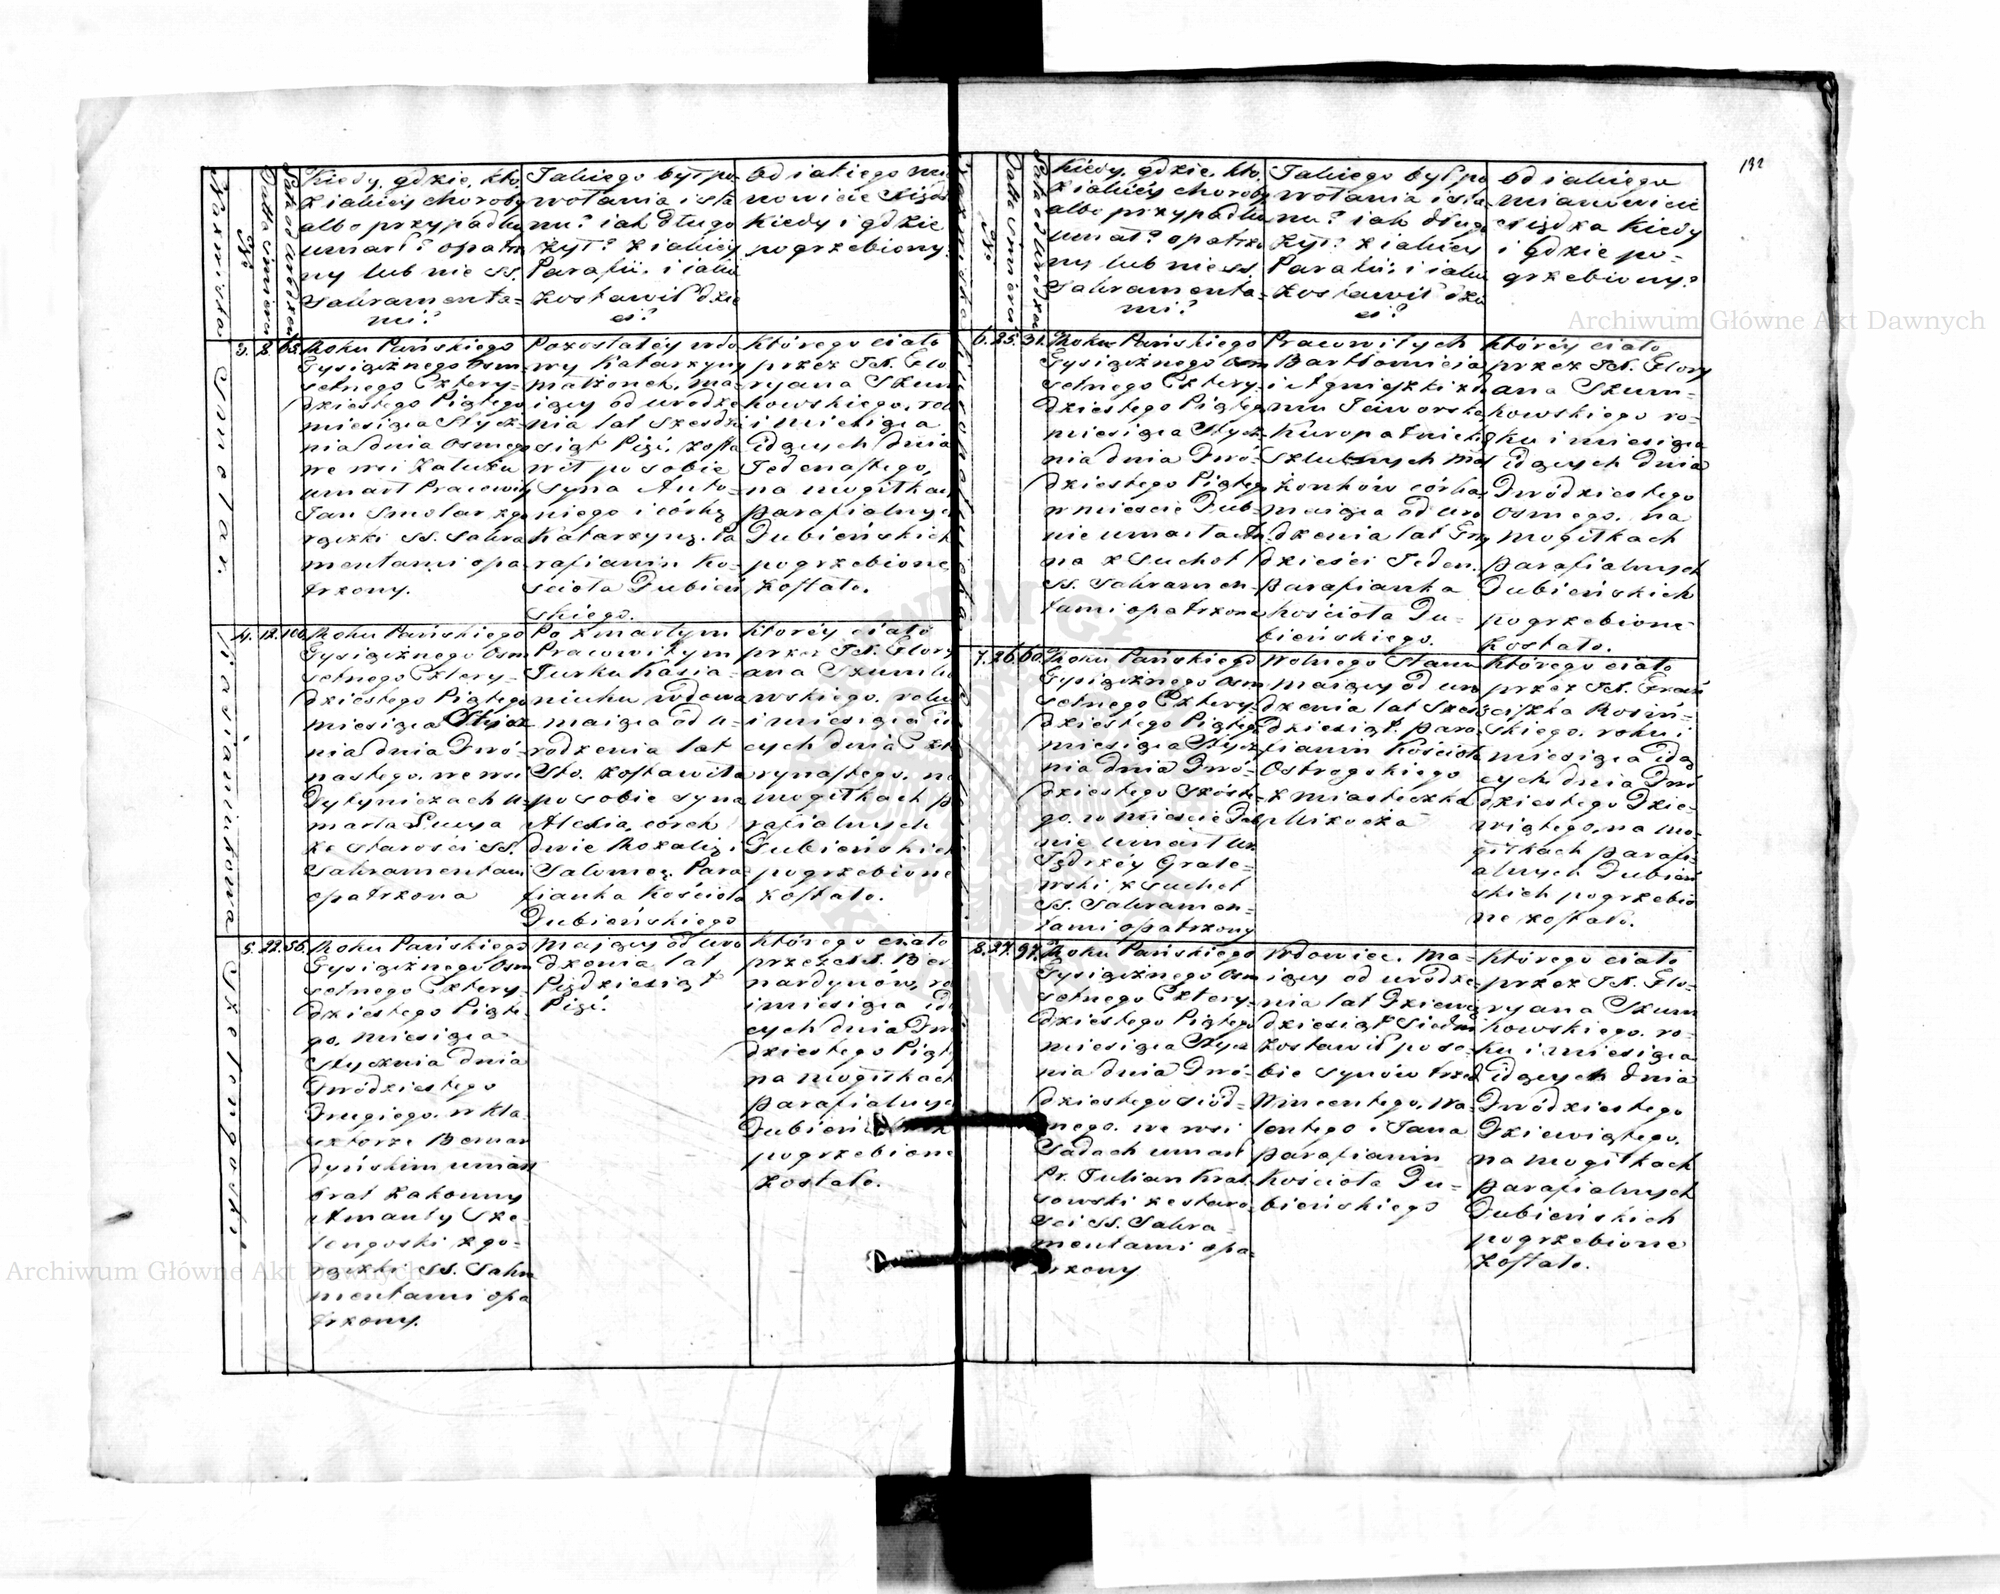 132
Nazwiska
No
Datta śmierci
Lata od urodzen
Kiedy, gdzie, kto,
z iakiéy choroby
albo przypadku
umarł? opatrzo
ny lub nie SS.
Sakramenta-
mi?
Jakiego był po
wołania i sta
nu? iak długo
żył? z iakiéy
Parafii, i iakie
zostawił dzie
ci?
Od iakiego mia
nowicie Xiędza
Kiedy i gdzie
pogrzebiony?
Smolar.
3. 8. 65.
Roku Pańskiego
Tysiącznego Osm
setnego Cztery-
dziestego Piątego
miesiąca Stycz-
nia dnia Osmego
we wsi
umarł Pracowity
Jan Smolar z go
rączki SS. Sakra
mentami opa
trzony.
Pozostałéy wdo
wy Katarzyny
małżonek, ma
iący od urodze
nia lat Sześdzie
siąt Pięć, zosta
wił po sobie
syna Anto-
niego i córkę
Katarzynę. Pa
rafianin Ko-
ścioła Dubień
skiego.
którego ciało
przez JX. Flo
ryana Szum
kowskiego, roku
i miesiąca
idących dnia
Jedenastego,
na mogiłkach
parafialnych
Dubieńskich
pogrzebione
zostało.
Kasianiukowa
4. 12. 100
Roku Pańskiego
Tysiącznego Osm
setnego Cztery-
dziestego Piątego
miesiąca Stycz
nia dnia Dwó-
nastego. we wsi
Dytyniczach u-
marła
ze starości SS.
Sakramentami
opatrzona
Po zmarłym
Pracowitym
Jurku Kasia-
niuku wdowa
maiąca od u-
rodzenia lat
Sto. zostawiła
po sobie syna
Alexia, córek
dwie Rozalią i
Salomeę. Para-
fianka Kościoła
Dubieńskiego
któréy ciało
przez JX. Flory
ana Szumko
wskiego, roku
i miesiąca id
cych dnia Czte
rynastego, na
mogiłkach p
rafialnych
Dubieńskich
pogrzebione
zostało.
Szelongowski
5. 22. 55.
Roku Pańskiego
Tysiącznego Osm
setnego Cztery-
dziestego Piąte-
go, miesiąca
Stycznia dnia
Dwódziestego
Drugiego. w kla-
sztorze Bernar
dyńskim umarł
brat zakonny
Amanty Sze-
longoski z go-
rączki SS. Sakra
mentami opa
trzony.
maiący od uro
dzenia lat
Pięćdziesiąt
Pięć.
którego ciało
przez XX. Ber
nardynów, ro
i miesiąca idą
cych dnia Dwó
dziestego Piąte
na mogiłkach
parafialnych
pogrzebione
zostało.
Nazwiska
No
Datta śmierci
Lata od Urodze
Kiedy, gdzie, kto,
z iakiéy choroby
albo przypadku
umarł? opatrzo
ny lub nie SS.
Sakramenta-
mi?
Jakiego był po
wołania i sta
nu? iak długo
żył? z iakiéy
Parafii, i iakie
zostawił dzie
ci?
Od iakiego
mianowicie
Xiędza Kiedy
i gdzie po-
grzebiony?
6. 25. 31.
Roku Pańskiego
Tysiącznego Osm
setnego Cztery-
dziestego Piątego
miesiąca Stycz
nia dnia Dwó-
dziestego Piątego
w mieście Dub-
nie umarła
na z Suchot
SS. Sakramen-
tami opatrzona
Pracowitych
Bartłomieia
i Agnieszki
Kuropatnick
szlubnych mał
żonków córka
maiąca od uro
dzenia lat Trzy
dzieści Jeden.
parafianka
kościoła Du-
bieńskiego.
któréy ciało
przez JX. Flory
ana Szum-
kowskiego ro-
ku i miesiąca
idących dnia
Dwódziestego
Osmego. na
mogiłkach
parafialnych
Dubieńskich
pogrzebione
zostało.
7. 26. 60.
Roku Pańskiego
Tysiącznego Osm
setnego Cztery-
dziestego Piątego
miesiąca Stycz
nia dnia Dwó-
dziestego Szóste-
go. w mieście Dub
nie umarł Ur.
Jędrzéy Grale-
wski z suchot
SS. Sakramen-
tami opatrzony
wolnego Stanu
maiący od uro
dzenia lat Sześ
dziesiąt. para
fianin kościoła
Ostrogskiego
z miasteczka
Mizocza
którego ciało
przez JX. Fran
ciszka Rosiń-
skiego. roku i
miesiąca idą
cych dnia Dwó
dziestego Dzie-
wiątego, na mo-
giłkach parafi-
alnych Dubień
skich pogrzebio
ne zostało.
8. 27. 97.
Roku Pańskiego
Tysiącznego Osm
setnego Cztery-
dziestego Piątego
miesiąca Stycz
nia dnia Dwó-
dziestego siód-
mego. we wsi
Sadach umarł
Pr. Julian
ze staro-
ści SS. Sakra-
mentami opa-
trzony
Wdowiec. ma-
iący od urodze
nia lat Dziewię
dziesiąt Siedm
zostawił po so-
bie synów trzech
Wincentego, Wa-
lentego i Jana
parafianin
Kościoła Du-
bieńskiego
którego ciało
przez JX. Flo-
ryana Szum
kowskiego. ro-
ku i miesiąca
idących dnia
Dwódziestego
Dziewiątego.
na mogiłkach
parafialnych
Dubieńskich
pogrzebione
zostało.
Archiwum Główne Akt Dawnych
Archiwum Główne Akt Dawnych